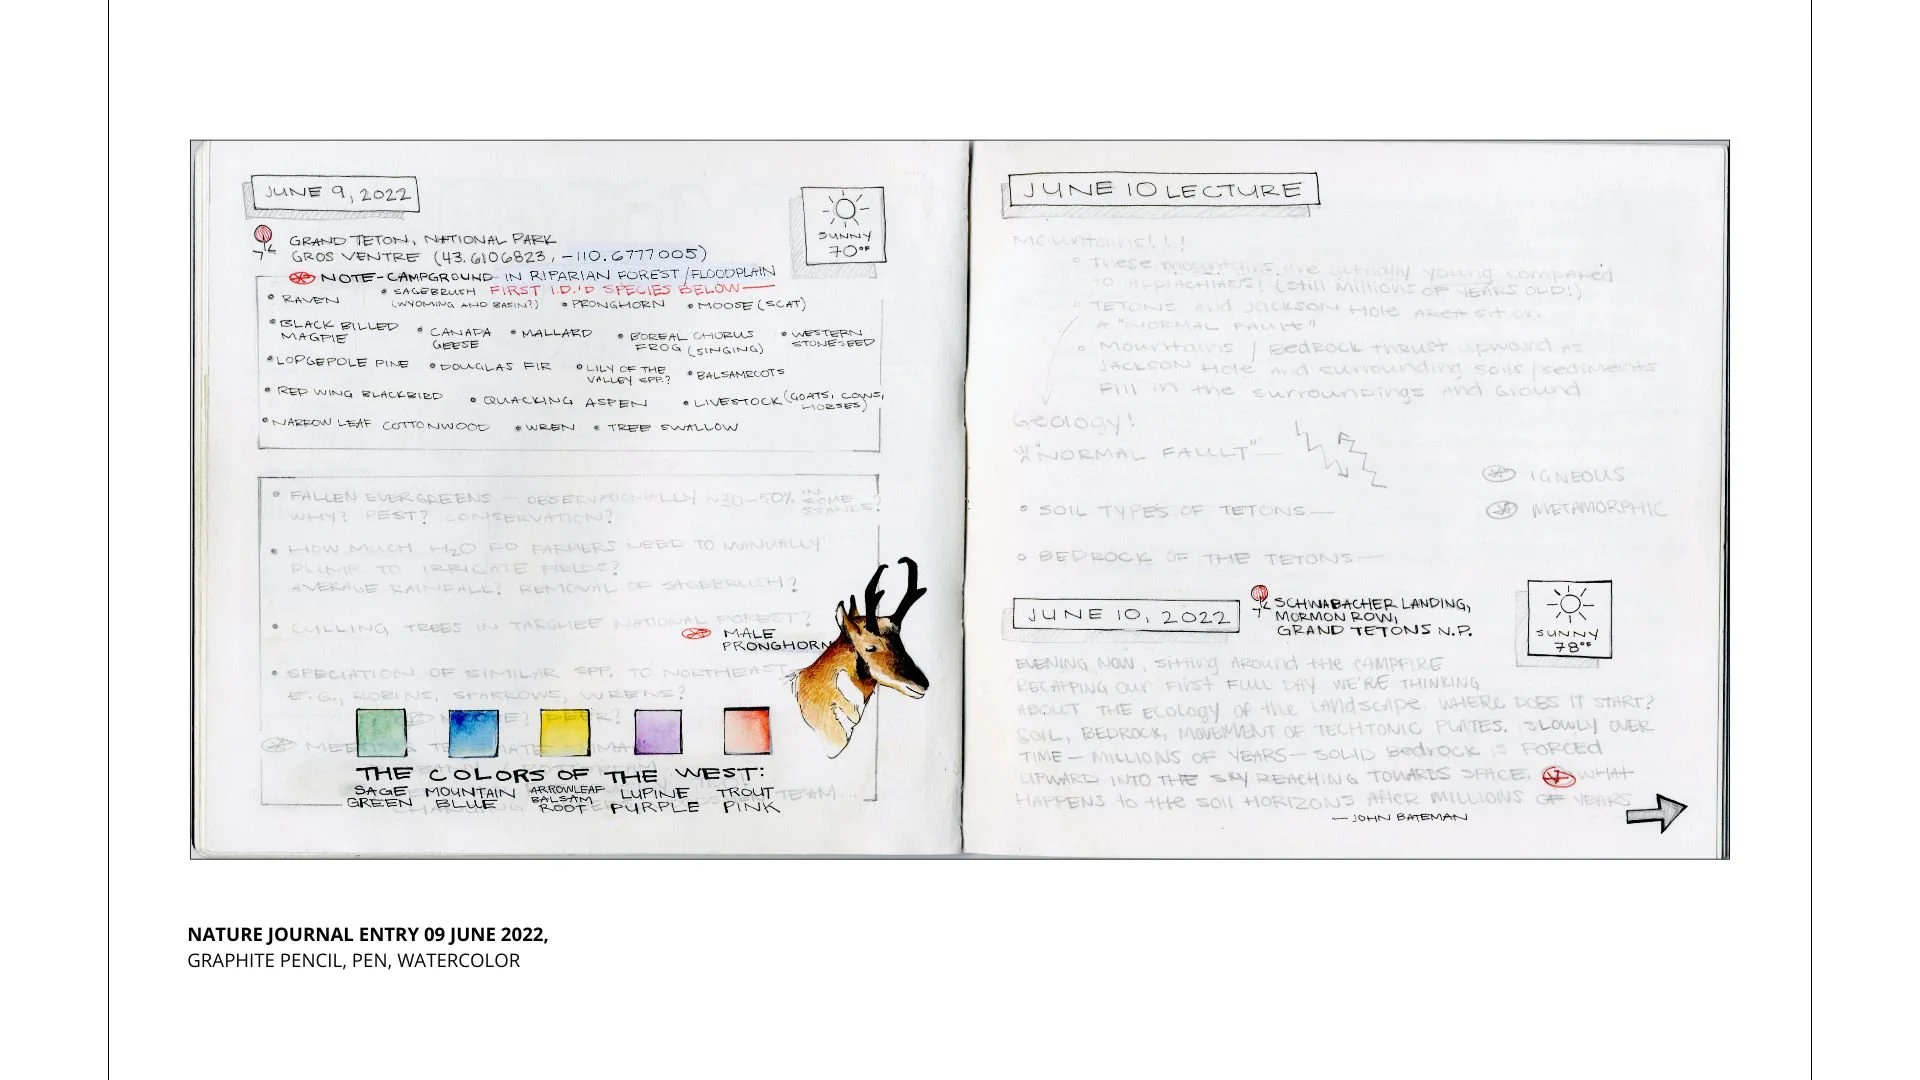 JUNE 9, 2022
SUNNY
70°F
GRAND TETON, NATIONAL PARK
GROS VENTRE (43.6106823, -110.6777005)
NOTE-CAMPGROUND IN RIPARIAN FOREST/FLOODPLAIN
• SAGEBRUSH FIRST I.D.'D SPECIES BELOW
(WYOMING AND BASIN?)
• RAVEN • PRONGHORN • MOOSE (SCAT)
• BLACK BILLED MAGPIE • CANADA GEESE • MALLARD • BOREAL CHORUS FROG (SINGING) • WESTERN STONESEED
• LODGEPOLE PINE • DOUGLAS FIR • LILY OF THE VALLEY SPP.? • BALSAMROOTS
• RED WING BLACKBIRD • QUACKING ASPEN • LIVESTOCK (GOATS, COWS, HORSES)
• NARROW LEAF COTTONWOOD • WREN • TREE SWALLOW
• FALLEN EVERGREENS — OBSERVATIONALLY ~30-50% IN SOME STANDS?
WHY? PEST? CONSERVATION?
• HOW MUCH H2O DO FARMERS NEED TO MANUALLY
PUMP TO IRRIGATE FIELDS?
AVERAGE RAINFALL? REMOVAL OF SAGEBRUSH?
• CULLING TREES IN TARGHEE NATIONAL FOREST?
MALE
PRONGHORN
• SPECIATION OF SIMILAR SPP. TO NORTHEAST
E.G., ROBINS, SPARROWS, WRENS?
THE COLORS OF THE WEST:
SAGE GREEN
MOUNTAIN BLUE
ARROWLEAF BALSAM ROOT
LUPINE PURPLE
TROUT PINK
TEAM
JUNE 10 LECTURE
Mountains!!!
• These mountains are actually young compared
TO APPLACHIANS! (Still Millions OF YEARS OLD!)
• TETONS and JACKSON Hole AREA sit on
A "NORMAL FAULT"
• Mountains / Bedrock thrust upward as
JACKSON Hole and surrounding soils/sediments
Fill in the surroundings and Ground
Geology!
"NORMAL FAULT"—
IGNEOUS
• SOIL TYPES OF TETONS—
METAMORPHIC
• BEDROCK OF THE TETONS—
JUNE 10, 2022
SCHWABACHER LANDING,
MORMON ROW,
GRAND TETONS N.P.
SUNNY
78°F
EVENING NOW, sitting Around the CAMPFIRE
RECAPPING our First FULL DAY WE'RE THINKING
ABOUT THE Ecology of the Landscape. WHERE DOES IT START?
SOIL, BEDROCK, MOVEMENT OF TECHTONIC PLATES. SLOWLY OVER
TIME — MILLIONS OF YEARS — SOLID Bedrock is FORCED
UPWARD INTO THE SKY REACHING TOWARDS SPACE. WHAT
HAPPENS to the SOIL HORIZONS AFTER MILLIONS OF YEARS
— JOHN BATEMAN
NATURE JOURNAL ENTRY 09 JUNE 2022,
GRAPHITE PENCIL, PEN, WATERCOLOR